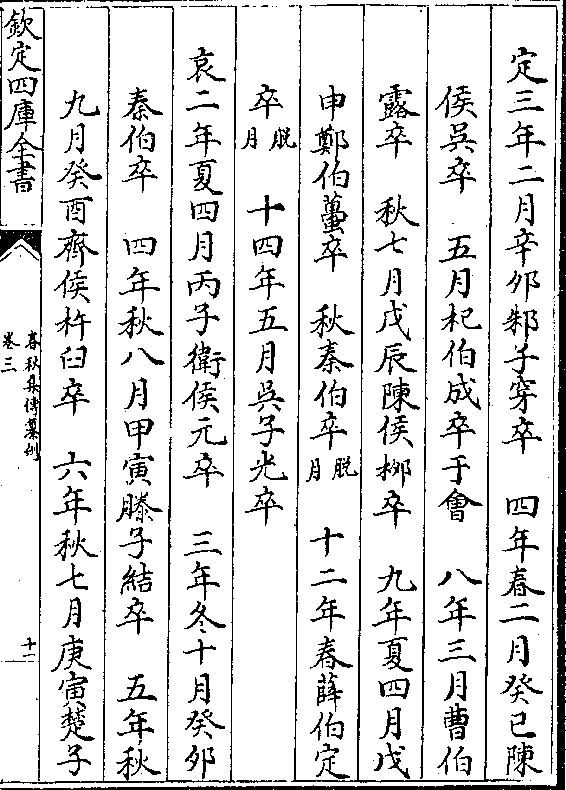 定三年二月辛卯邾子穿卒　四年春二月癸巳陳
侯吳卒　五月杞伯成卒于會　八年三月曹伯
露卒　秋七月戊辰陳侯栁卒　九年夏四月戊
申鄭伯蠆卒　秋秦伯卒脫月　十二年春薛伯定
卒脫月　十四年五月吳子光卒
哀二年夏四月丙子衛侯元卒　三年冬十月癸卯
秦伯卒　四年秋八月甲寅滕子結卒　五年秋
九月癸酉齊侯杵臼卒　六年秋七月庚寅楚子
欽定四庫全書
春秋集傳纂例
卷三
十一